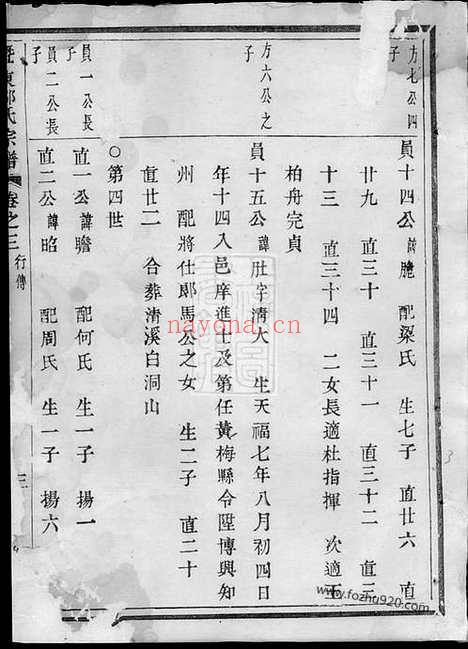 方七公四
子
員十四公諱膍 配梁氏 生七子 直廿六 直
廿九 直三十 直三十一 直三十二 直三
十三 直三十四 二女長適杜指揮 次適王
柏舟完貞
方六公之
子
員十五公諱肚字清大 生天福七年八月初四日
年十四入邑庠進士及第任黄梅縣令陞博興知
州 配將仕郎馬公之女 生二子 直二十
直廿二 合葬清溪白洞山
○第四世
員一公長
子
直一公諱瞻 配何氏 生一子 揚一
員二公長
子
直二公諱昭 配周氏 生一子 揚六
東郭氏宗譜 卷之三 行傳 三
nayona.cn
www.fozhu920.com